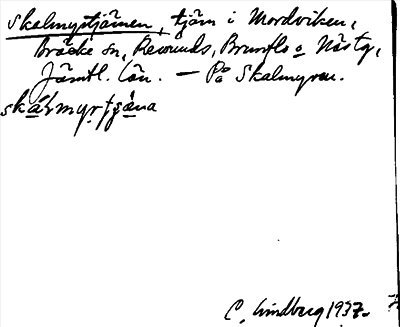 Skalmyrtjärnen, tjärn i Mordviken,
Bräcke sn, Revsunds, Brunflo o Näs tg,
Jämtl. län. — På Skalmyren.
skálmyrtjäṇa
C. Lindberg 1937.